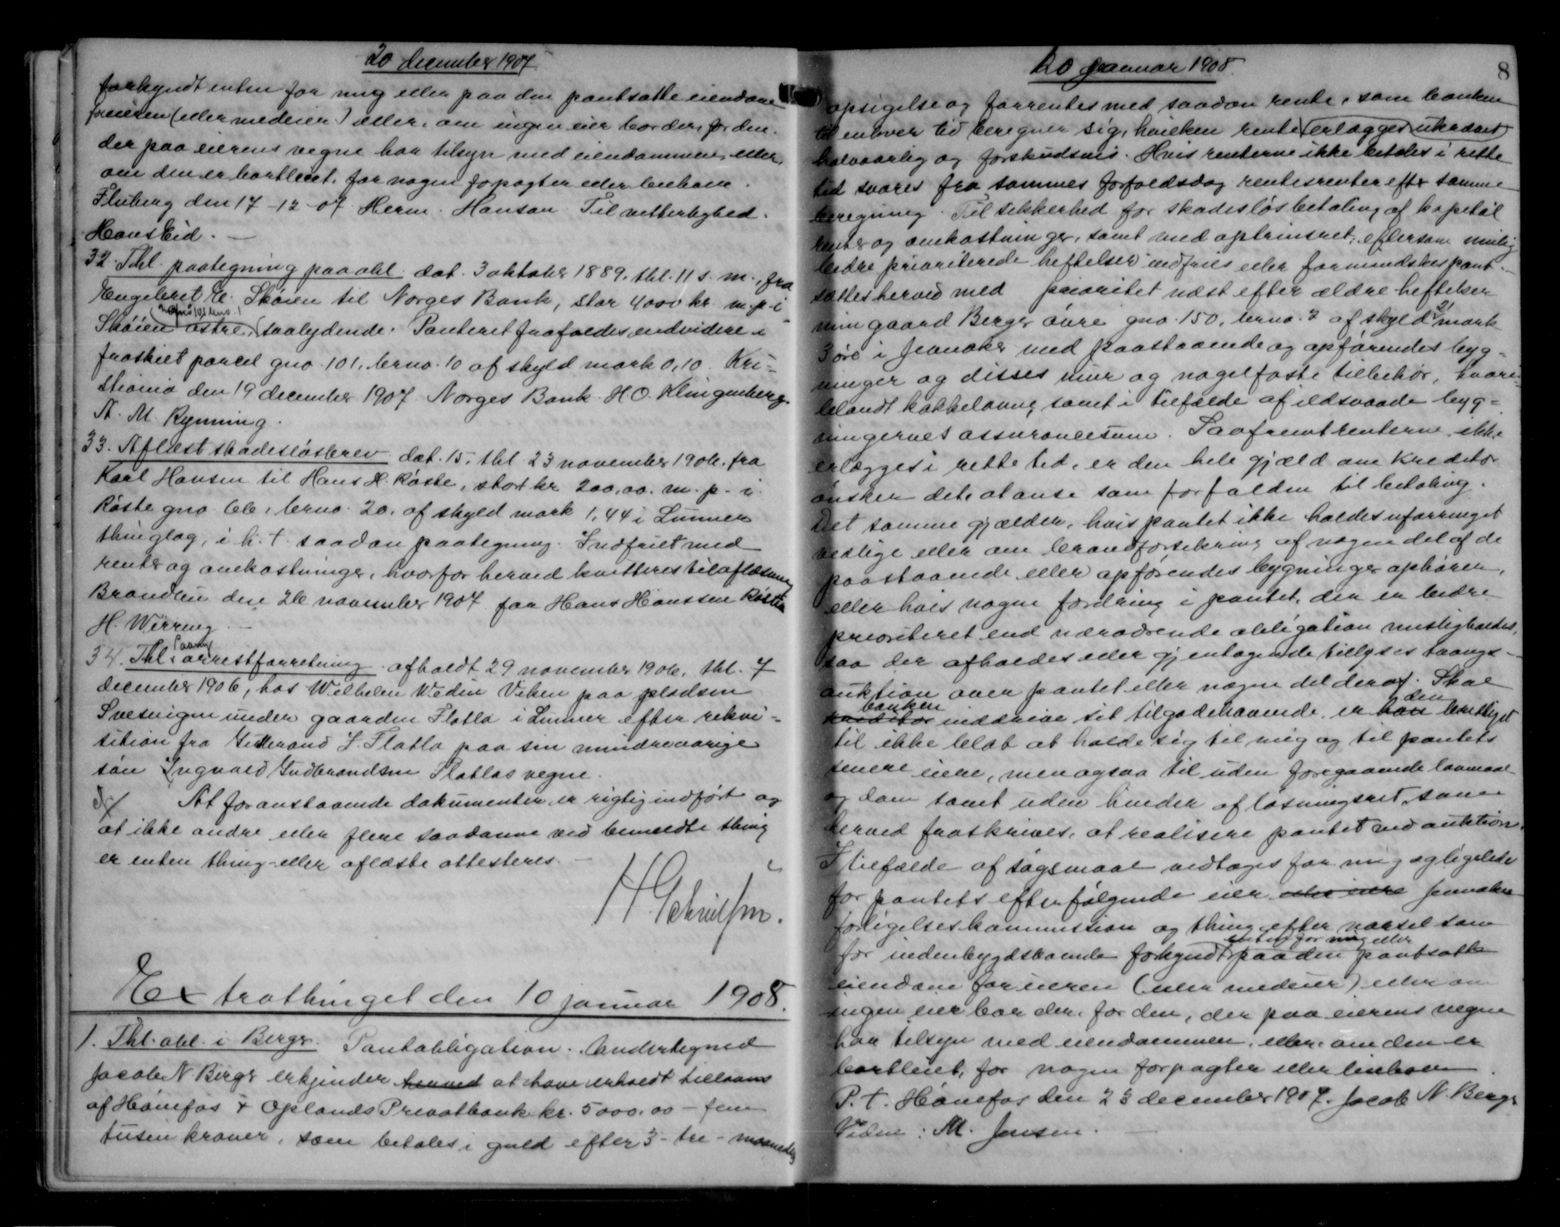 20 december 1907
forkyndt enten for mig eller paa den pantsatte eiendom
for eieren (eller medeier) eller, om ingen eier bor der, for den,
der paa eierens vegne har tilsyn med eiendommen, eller
om den er bortleiet, for nogen forpagter eller leiboer.
Fluberg den 17-12-07 Herm. Hansen Til vitterlighed.
Hans Eid. —
32. Thl. paategning paa obl. dat. 3 oktober 1889, thl. 11 s. m., fra
Engebret E. Skøien til Norges Bank, stor 4000 kr. m. p. i
Skøien østre, saalydende: Panteret frafaldes endvidere i
fraskilt parcel gno 101, brno. 10 af skyld mark 0,10. Kri-
stiania den 19 december 1907 Norges Bank H.O. Klingenberg
N. M. Rynning.
33. Aflæst skadesløsbrev dat. 15, thl 23 november 1906, fra
Karl Hansen til Hans H. Røste, stort kr. 200,00. m. p. i
Røste gno 66, brno. 20, af skyld mark 1,44 i Lunner
thinglag, i h. t. saadan paategning: Indfriet med
renter og omkostninger, hvorfor herved kvitteres til aflæsning
Brandbu den 26 november 1907 for Hans Hanssen Røste
H. Wirring. —
34. Thl. arrestforretning afholdt 29 november 1906, thl. 7
december 1906, hos Wilhelm Wedin Viken paa pladsen
Svesvigen under gaarden Flatla i Lunner efter rekvi-
sition fra Gulbrand J. Flatla paa sin mindreaarige
søn Ingvald Gudbrandsen Flatlas vegne.
At foranstaaende dokumenter er rigtig indført og
at ikke andre eller flere saadanne ved bemeldte thing
er enten thing- eller aflæste attesteres. —
Extrathinget den 10 januar 1908.
1. Thl. obl. i Berger. Pantobligation. Undertegned
Jacob N. Berger erkjender herved at have erholdt tillaans
af Hønefos & Oplands Privatbank kr. 5000,00 - fem
tusen kroner, som betales i guld efter 3 - tre - maaneders
20 januar 1908.
8
opsigelse og forrentes med saadan rente, som banken
til enhver tid beregner sig, hvilken rente erlægges ukrævet
halvaarlig og forskudsvis. Hvis renterne ikke betales i rette
tid svares fra sammes forfaldsdag rentesrenter efter samme
beregning. Til sikkerhed for skadesløs betaling af kapital
renter og omkostninger, samt med oprinsret, eftersom mulig
bedre prioriterede heftelser indfries eller formindskes pant-
sættes herved med prioritet næst efter ældre heftelser
min gaard Berger øvre gno. 150, brno. 2 af skyld mark
3 øre i Jevnaker med paastaaende og opførendes byg-
ninger og disses mur og nagelfaste tilbehør, hvori-
blandt kakkelovne, samt i tilfælde af ildsvaade byg-
ningernes assurancesum. Saafremt renterne ikke
erlægges i rette tid, er den hele gjæld om kreditor
ønsker det at anse som forfalden til betaling.
Det samme gjælder, hvis pantet ikke holdes uforringet
vedlige eller om brandforsikring af nogen del af de
paastaaende eller opførendes bygninger ophører,
eller hvis nogen fordring i pantet, der er bedre
prioriteret end nærværende obligation misligholdes,
saa der afholdes eller gjentagende tillyses tvangs-
auktion over pantet eller nogen del deraf. Skal
banken den
kreditor inddrive sit tilgodehavende, er han berettiget
til ikke blot at holde sig til mig og til pantets
senere eiere, men ogsaa til uden foregaaende lovmaal
og dom samt uden hinder af løsningsret, som
herved fraskrives, at realisere pantet ved auktion.
I tilfælde af søgsmaal vedtages for mig og ligeledes
for pantets efterfølgende eier eller eiere Jevnaker
forligelseskommission og thing efter varsel som
enten for mig eller
for indenbygdsboende forkyndt paa den pantsatte
eiendom for eieren (eller medeier) eller om
ingen eier bor der, for den, der paa eierens vegne
har tilsyn med eiendommen, eller om den er
bortleiet, for nogen forpagter eller leiboer.
P. t. Hønefos den 23 december 1907. Jacob N. Berger
Vidne: M. Jensen. —